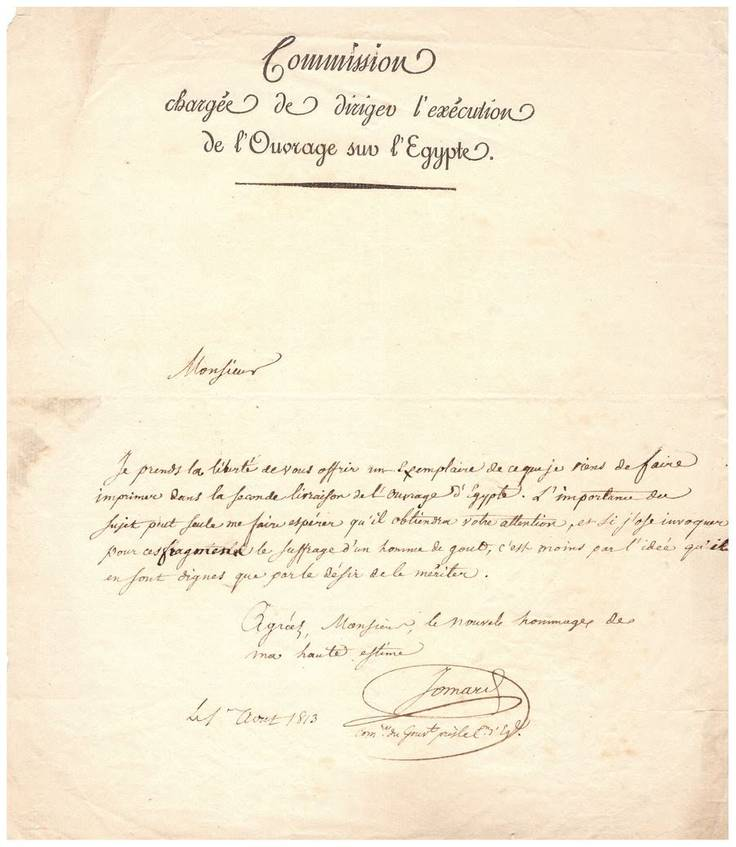 Commission
chargée de diriger l'exécution
de l'Ouvrage sur l'Egypte.
Monsieur
Je prends la liberté de vous offrir un Exemplaire de ce que je viens de faire
imprimer dans la seconde livraison de l'ouvrage d'Egypte. L'importance du
sujet peut seule me faire espérer qu'il obtiendra votre attention, et si j'ose invoquer
pour ces fragmens le suffrage d'un homme de gout, c'est moins par l'idée qu'il
en sont dignes que par le désir de le mériter.
Agréez, Monsieur, le nouvele hommage de
ma haute estime
Jomard
Le 1er Aout 1813